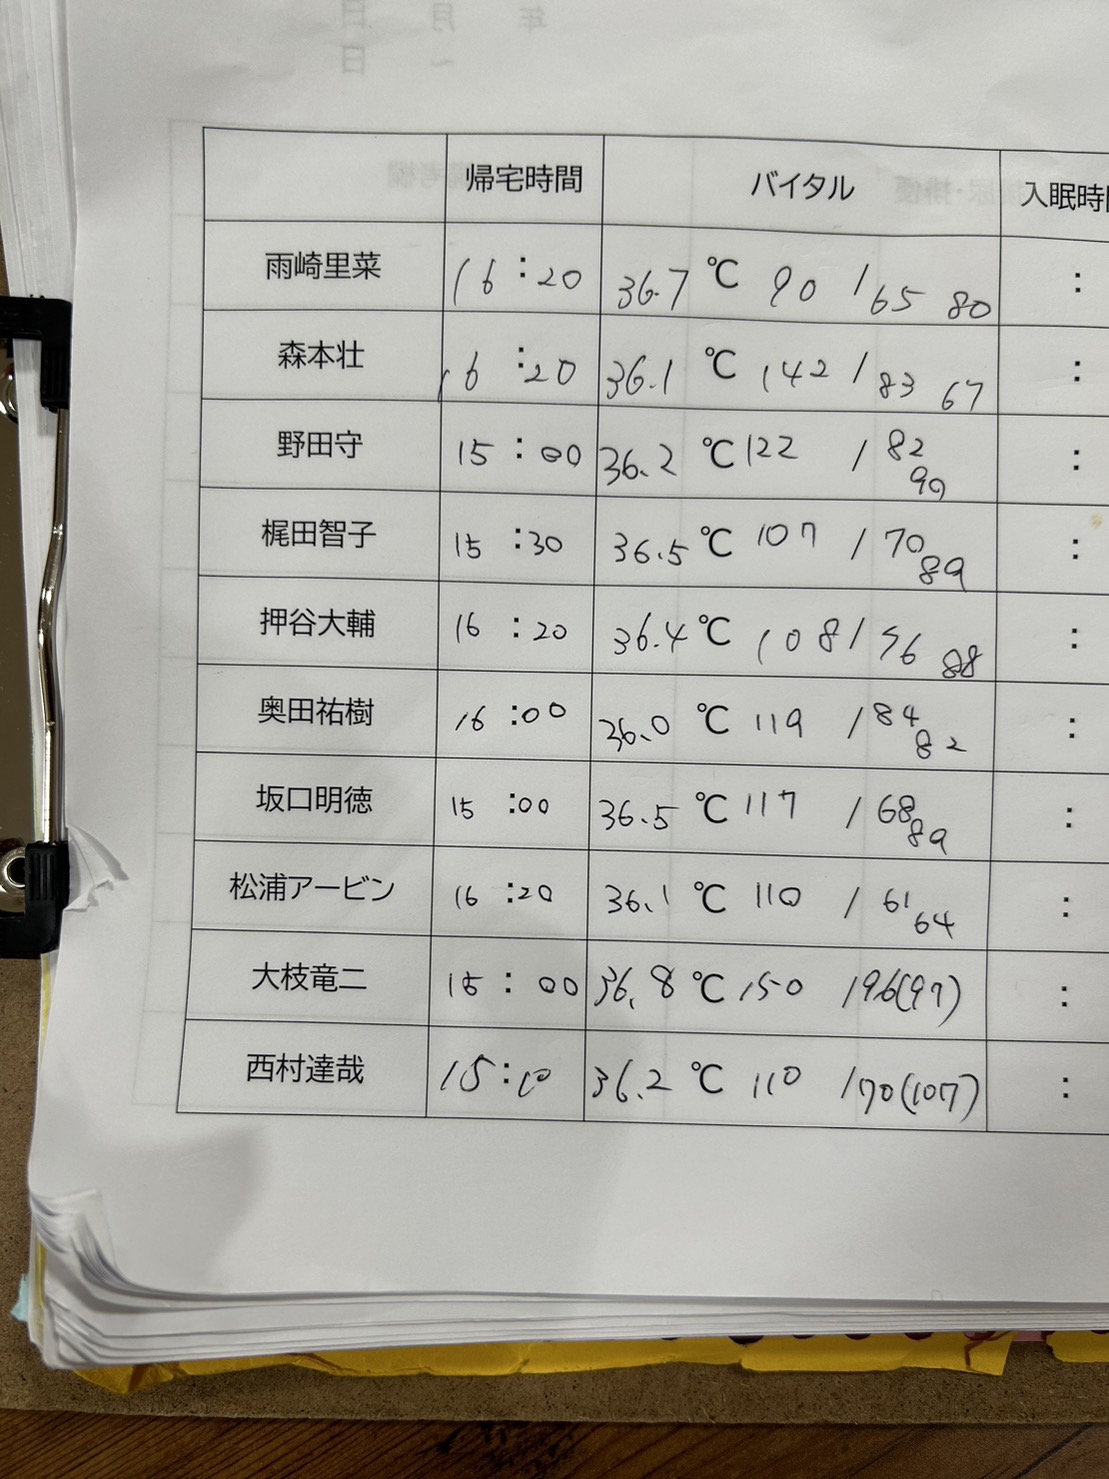 年 月 日
~ 日
帰宅時間 バイタル 入眠時間
雨崎里菜 16:20 36.7 ℃ 90 / 65 80 :
森本壮 16:20 36.1 ℃ 142 / 83 67 :
野田守 15:00 36.2 ℃ 122 / 82 90 :
梶田智子 15:30 36.5 ℃ 107 / 70 89 :
押谷大輔 16:20 36.4 ℃ 108 / 76 88 :
奥田祐樹 16:00 36.0 ℃ 119 / 84 82 :
坂口明徳 15:00 36.5 ℃ 117 / 68 89 :
松浦アービン 16:20 36.1 ℃ 110 / 61 64 :
大枝竜二 15:00 36.8 ℃ 150 / 96(97) :
西村達哉 15:10 36.2 ℃ 110 / 70(107) :